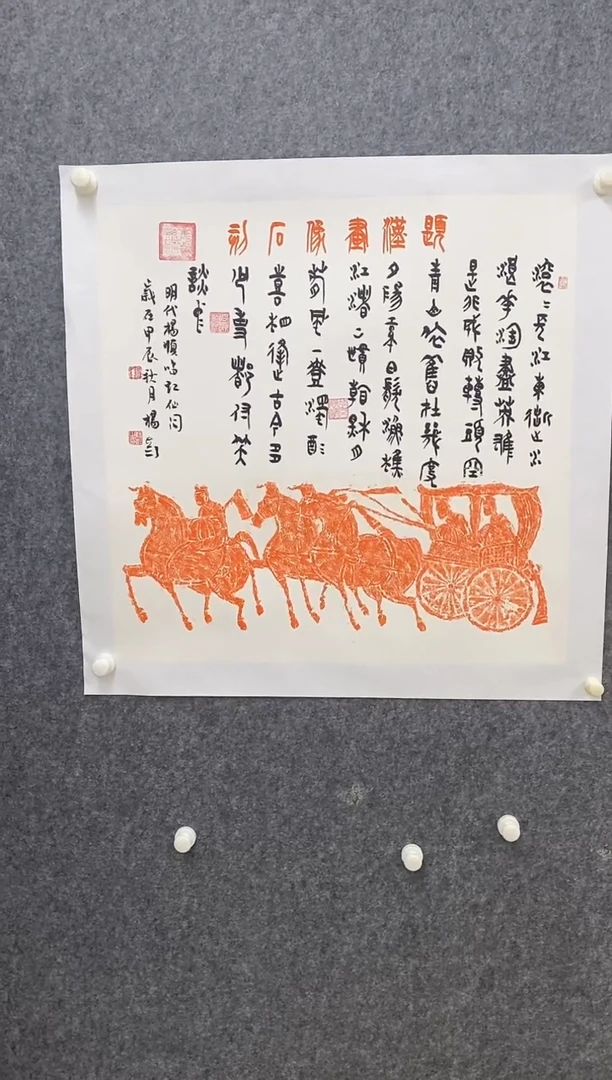 題漢畫像石刻
滾〻長江東逝水
浪花淘盡英雄
是非成敗轉頭空
青山依舊在幾度
夕陽紅白髮漁樵
江渚上慣看秋月
春風一壺濁酒
喜相逢古今多
少事都付笑
談中
明代楊慎臨江仙詞
歲在甲辰秋月楊